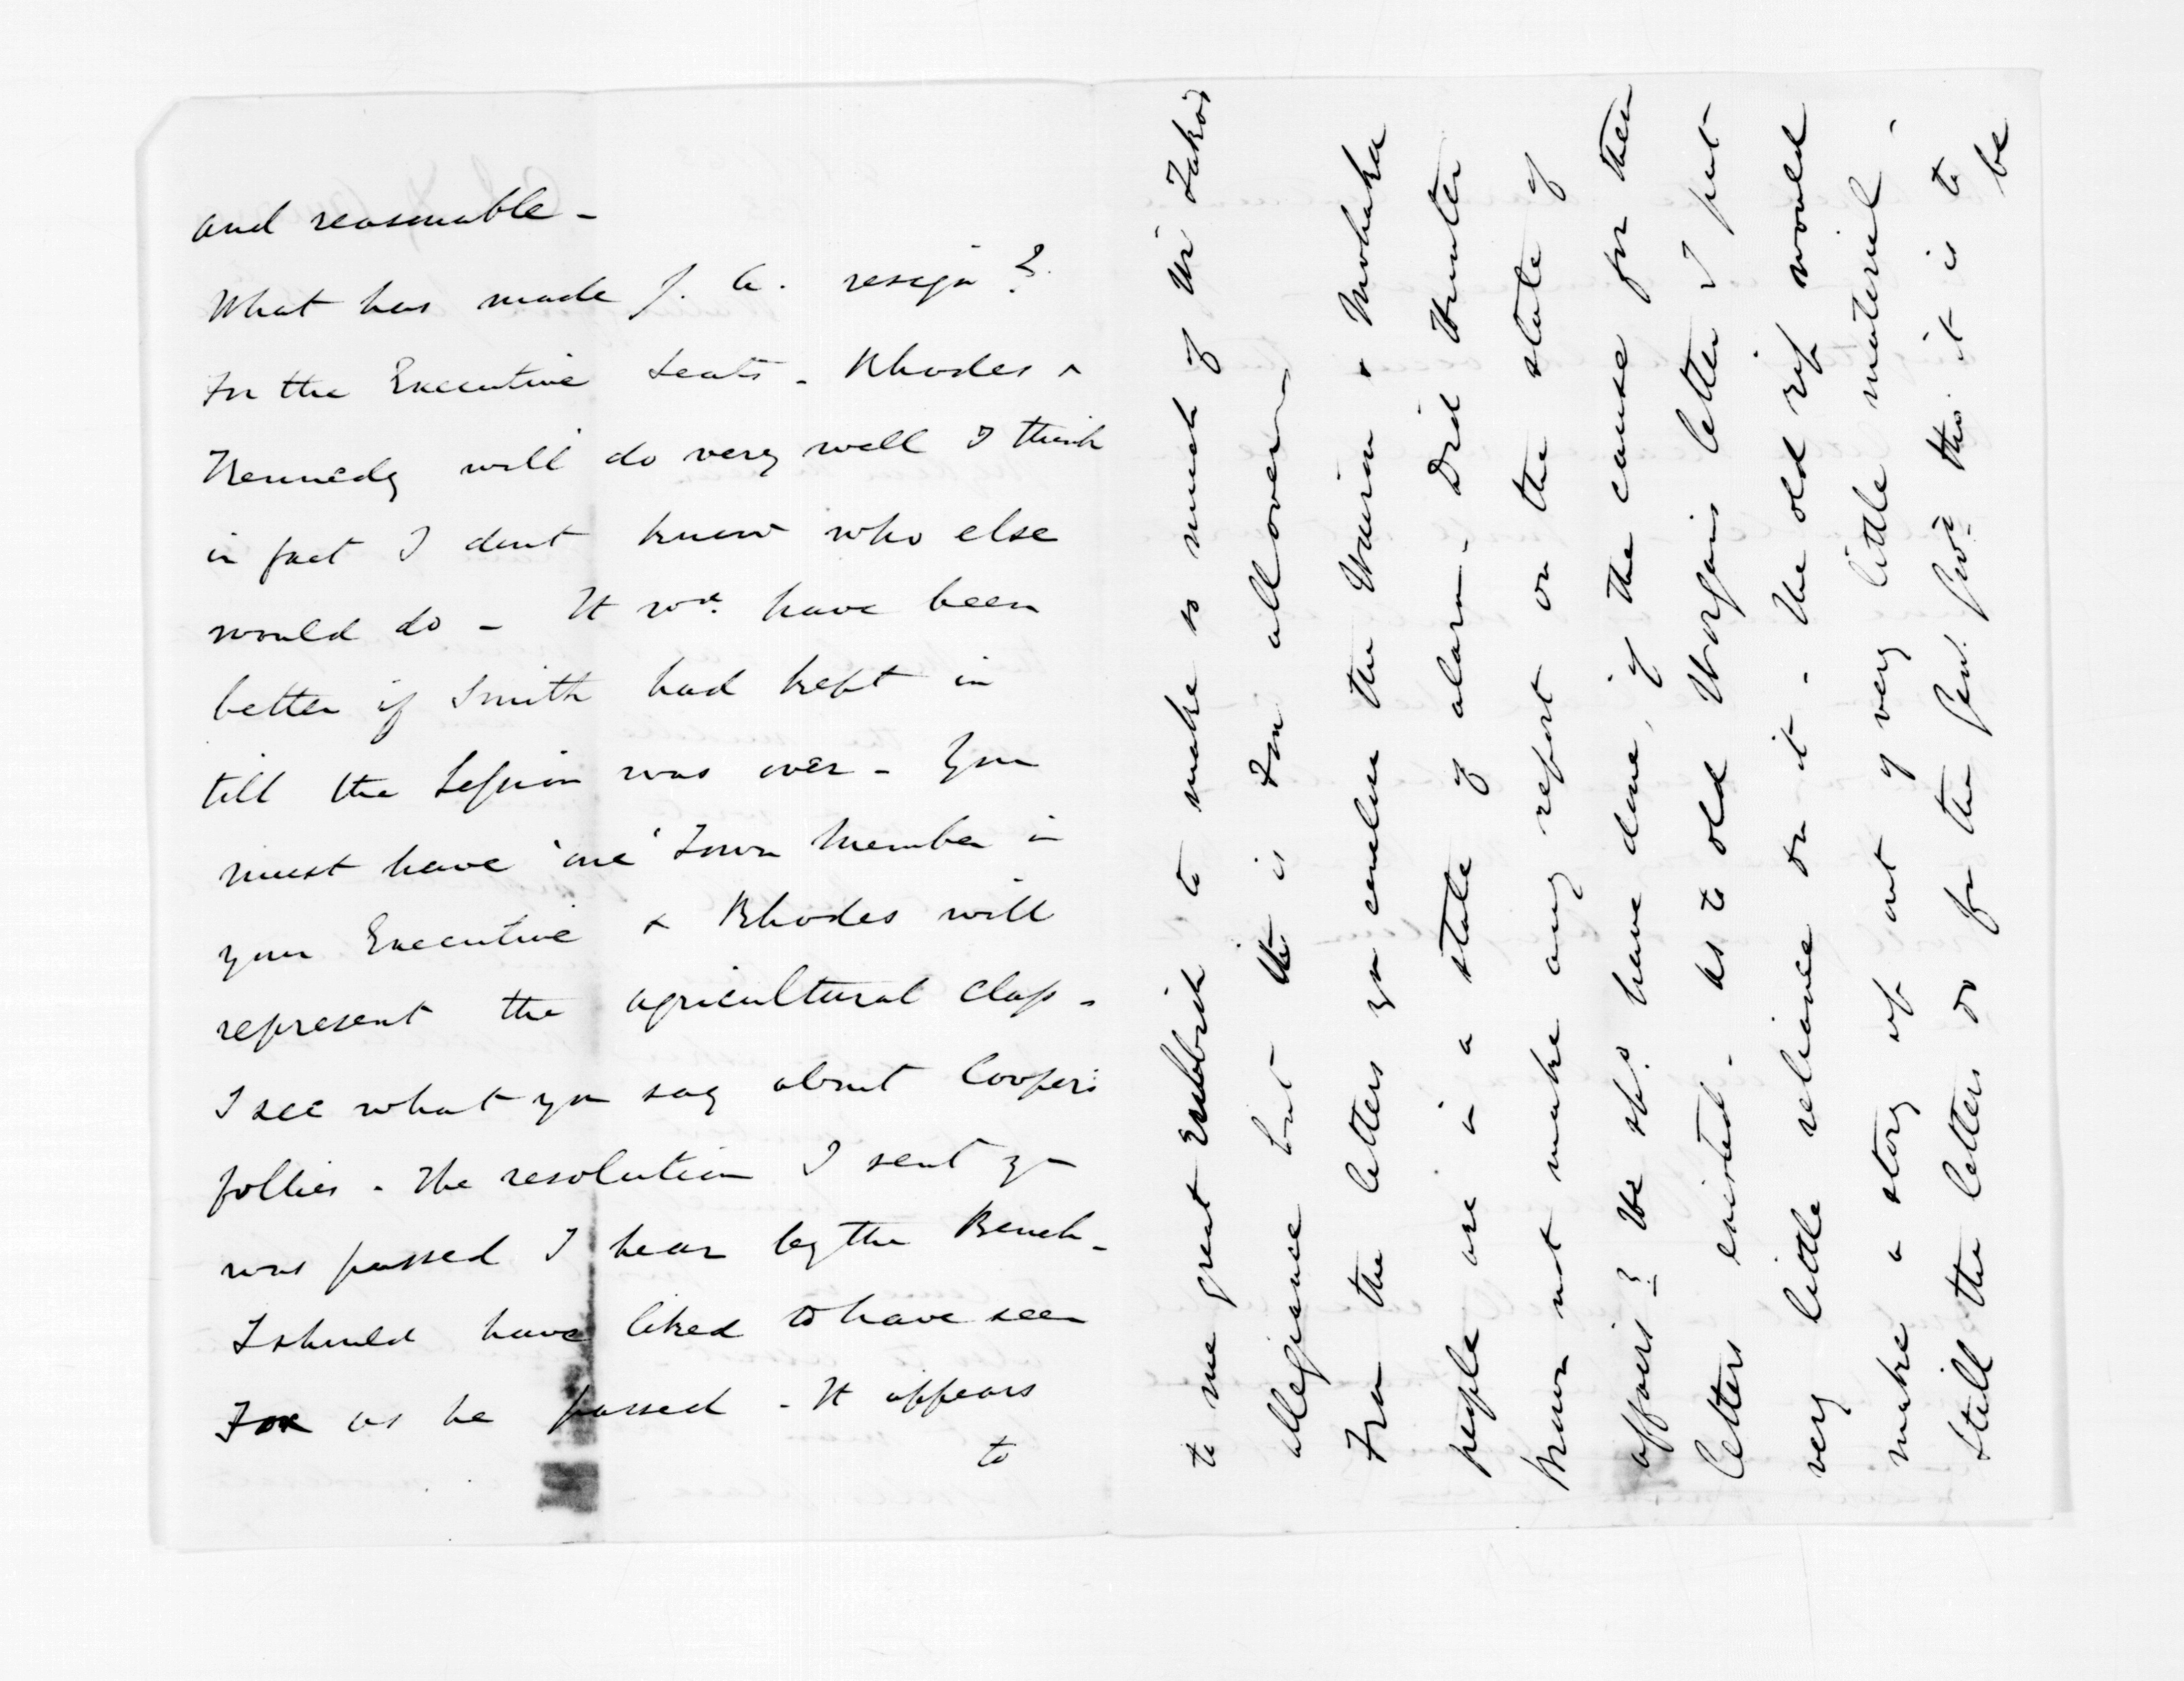 and reasonable -
What has made J. A. resign?
For the Executive seats - Rhodes &
Kennedy will do very well I think
in fact I dont know who else
would do - It wd. have been
better if Smith had kept in
till the Session was over - You
must have 'one' Town Member in
your Executive & Rhodes will
represent the agricultural class -
I see what you say about Coopers
follies - The resolution I sent you
was passed I hear by the Bench -
I should have liked to have seen
Fox as he passed - It appears
to
to me great rubbish to make so much of Wi Tako's
allegiance but this is Fox all over -
From the letters you enclose the Wairoa & Mohaka
people are in a state of alarm - Did Hunter
Brown not make any report on the state of
affairs? He shd. have done, if the cause for these
letters existed - As to old Worgans letter I put
very little reliance on it - The old rip would
make a story up out of very little material -
Still the letters do for the Genl. Govt. tho' it is to
be